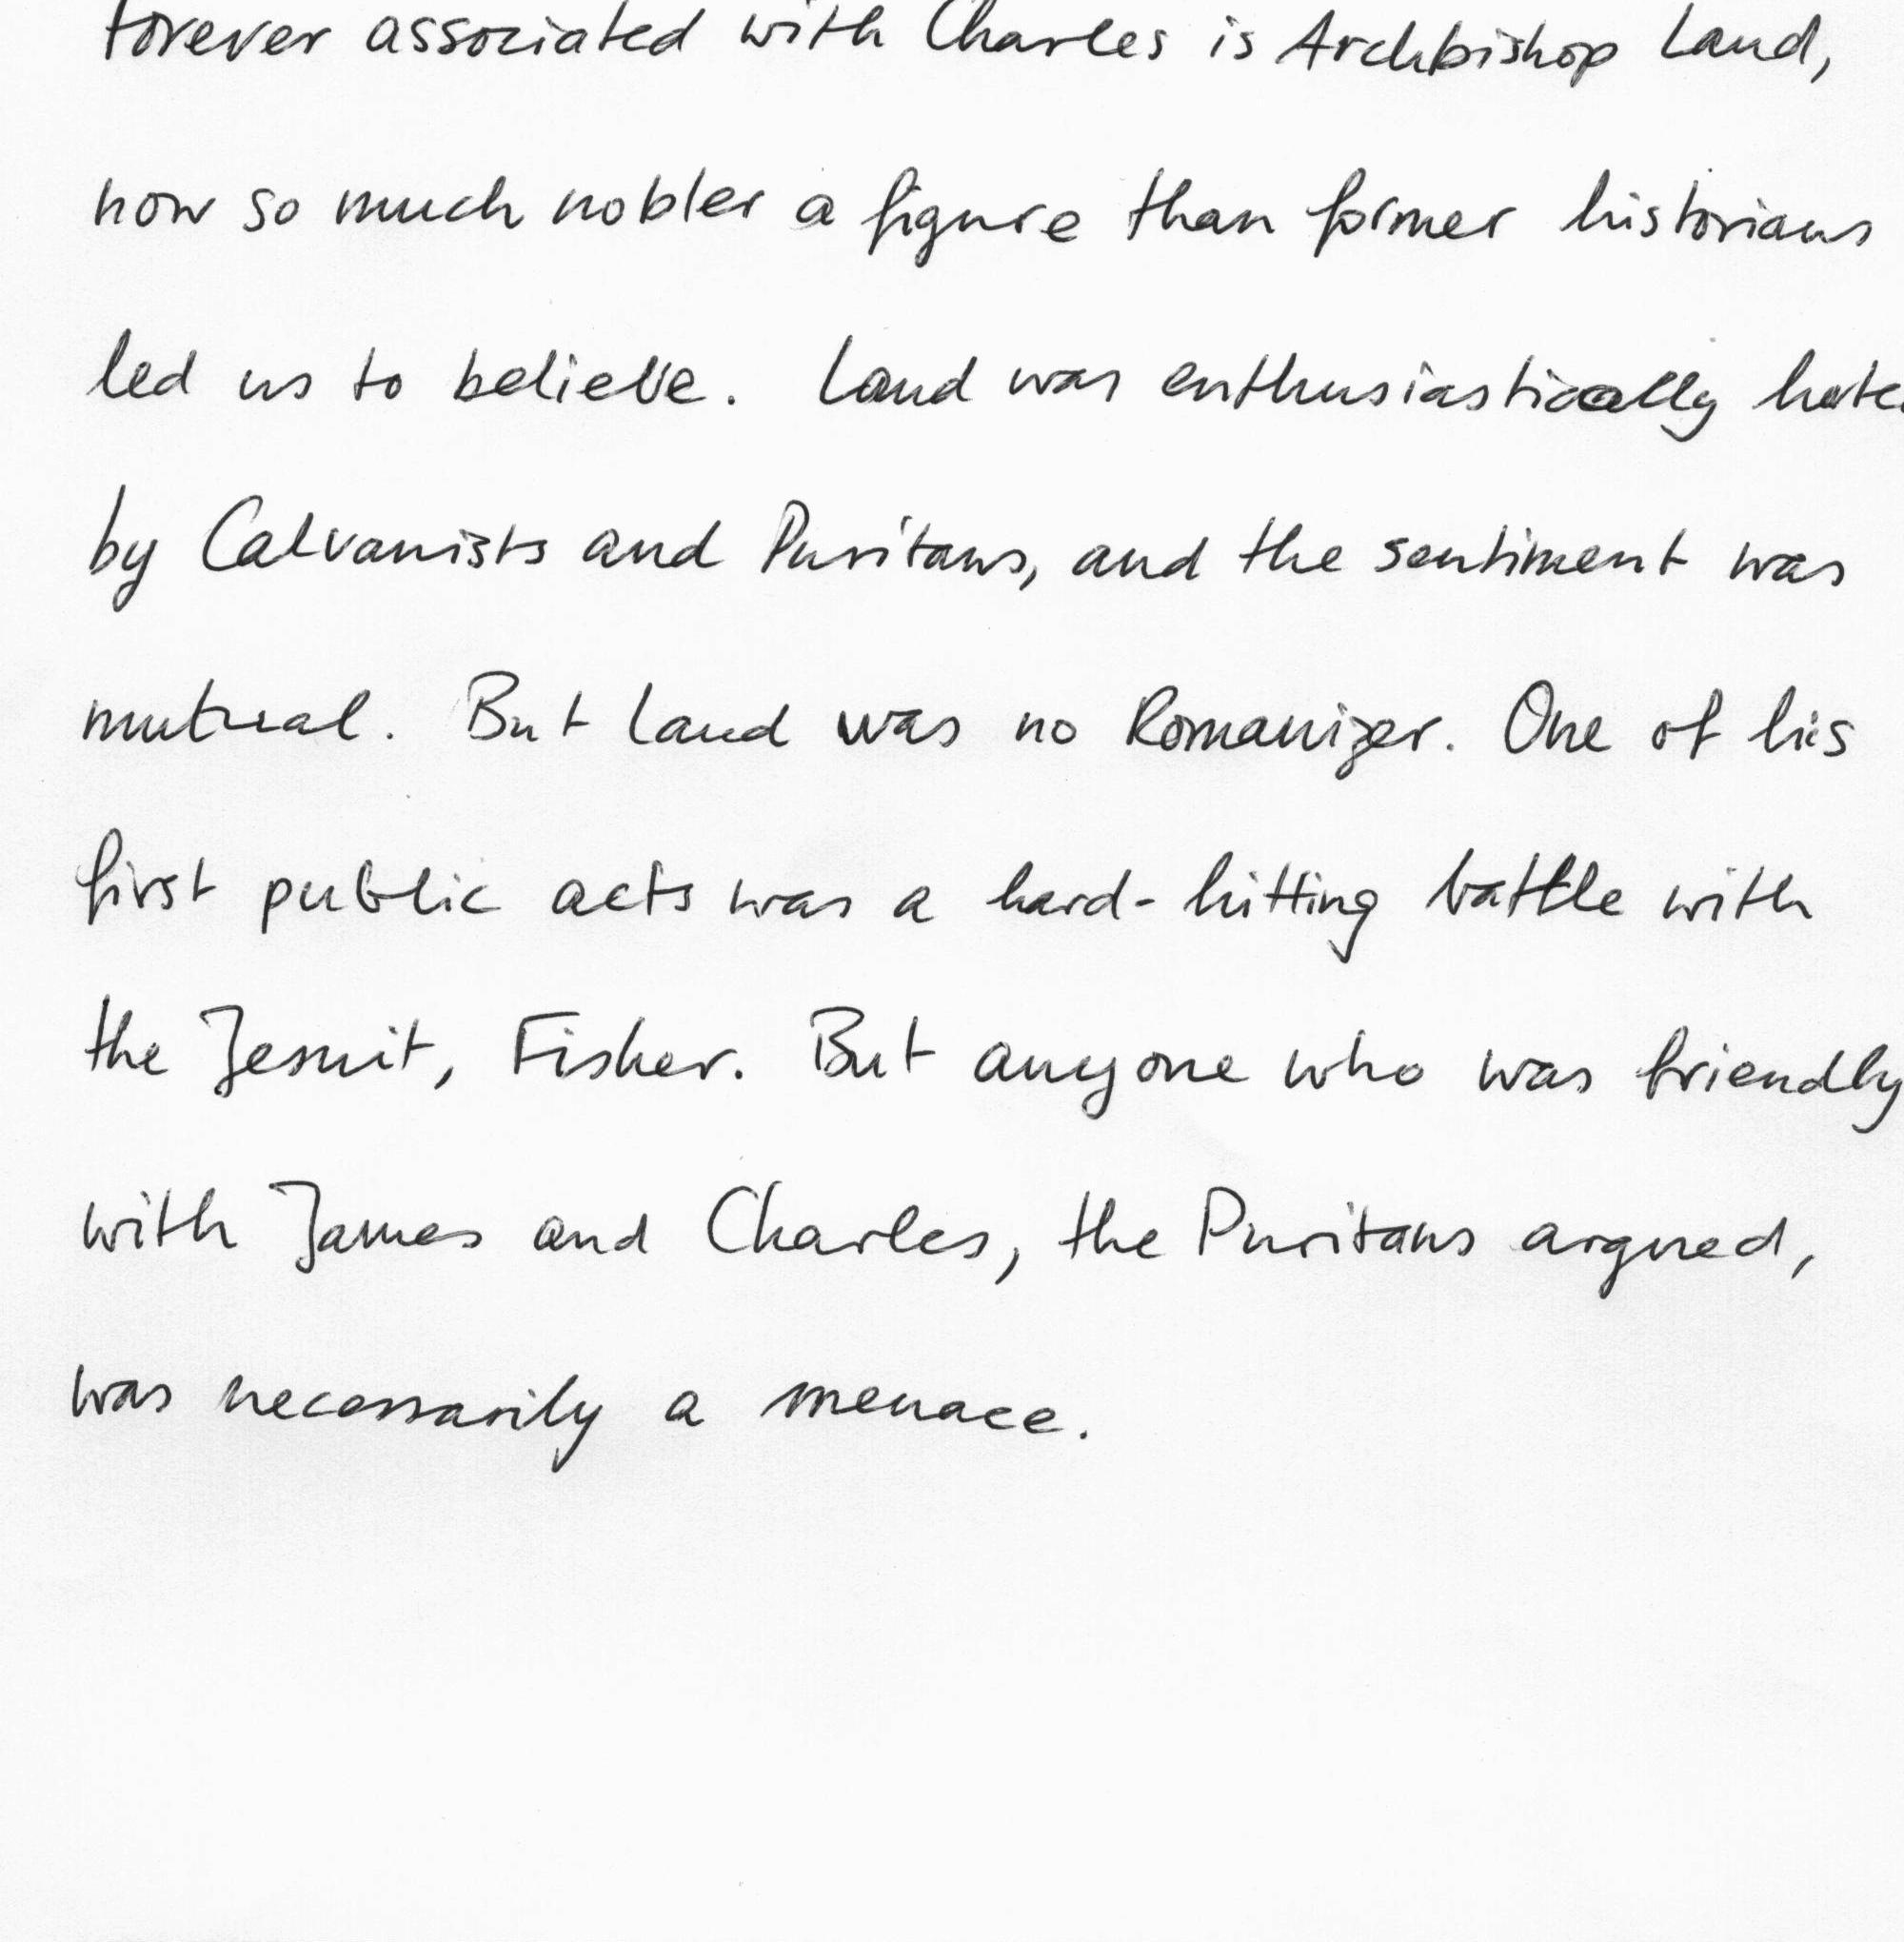 forever associated with Charles is Archbishop Laud,
now so much nobler a figure than former historians
led us to believe. Laud was enthusiastically hated
by Calvanists and Puritans, and the sentiment was
mutual. But Laud was no Romanizer. One of his
first public acts was a hard-hitting battle with
the Jesuit, Fisher. But anyone who was friendly
with James and Charles, the Puritans argued,
was necessarily a menace.